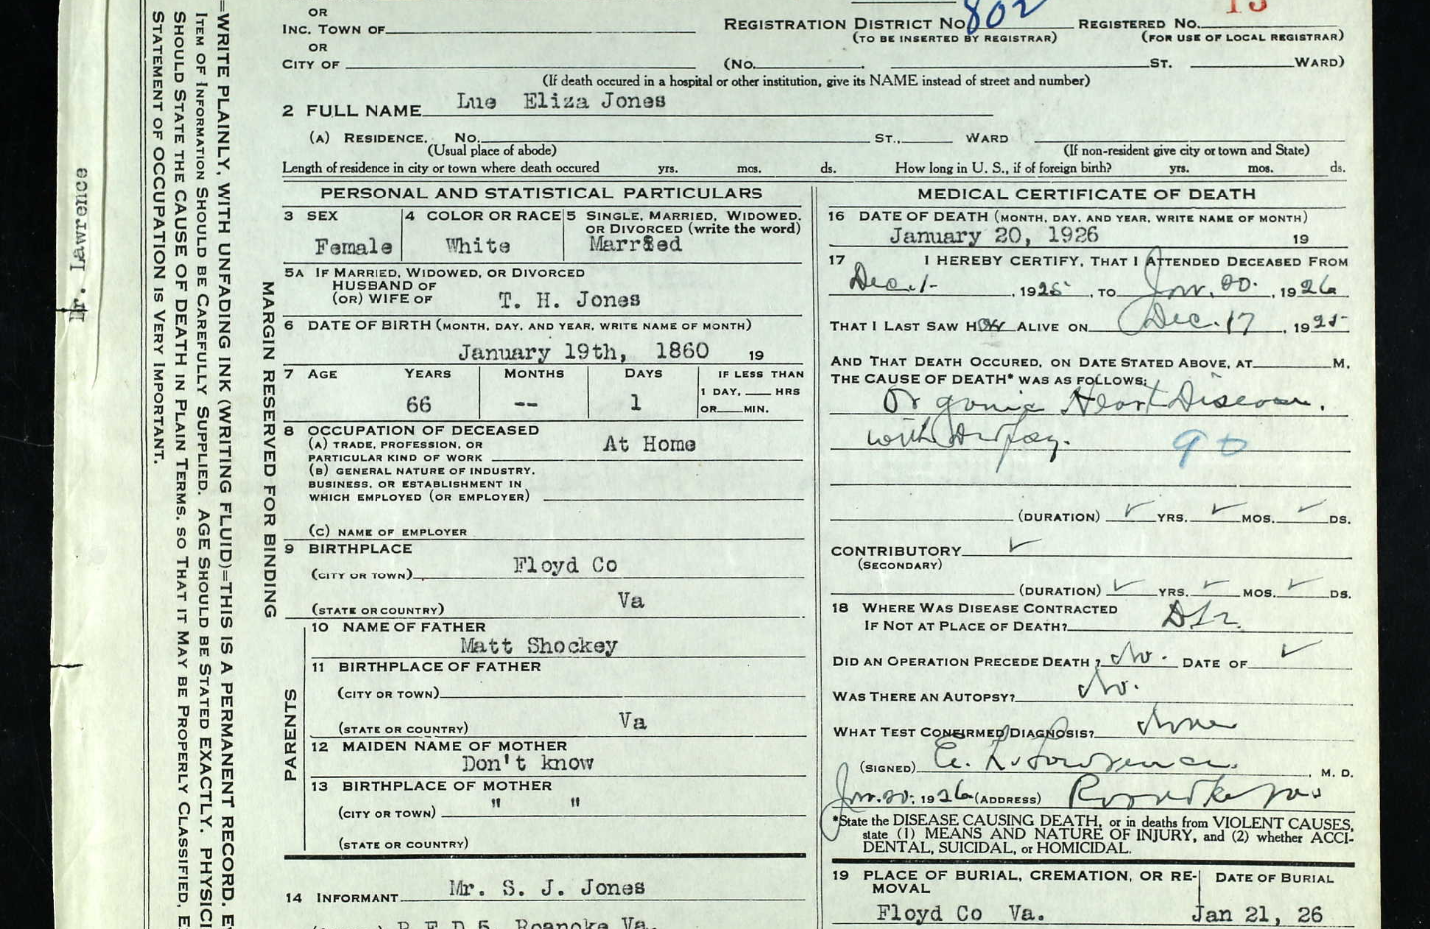 OR
INC. TOWN OF
REGISTRATION DISTRICT NO 802 REGISTERED NO. 13
(TO BE INSERTED BY REGISTRAR) (FOR USE OF LOCAL REGISTRAR)
OR
CITY OF (NO. ST. WARD)
(If death occured in a hospital or other institution, give its NAME instead of street and number)
2 FULL NAME Lue Eliza Jones
(A) RESIDENCE. NO. ST., WARD
(Usual place of abode) (If non-resident give city or town and State)
Length of residence in city or town where death occured yrs. mos. ds. How long in U. S., if of foreign birth? yrs. mos. ds.
PERSONAL AND STATISTICAL PARTICULARS
3 SEX
Female
4 COLOR OR RACE
White
5 SINGLE, MARRIED, WIDOWED,
OR DIVORCED (write the word)
Married
5A IF MARRIED, WIDOWED, OR DIVORCED
HUSBAND OF
(OR) WIFE OF T. H. Jones
6 DATE OF BIRTH (MONTH, DAY, AND YEAR, WRITE NAME OF MONTH)
January 19th, 1860 19
7 AGE YEARS MONTHS DAYS IF LESS THAN
1 DAY, HRS
66 -- 1 OR MIN.
8 OCCUPATION OF DECEASED
(A) TRADE, PROFESSION, OR
PARTICULAR KIND OF WORK At Home
(B) GENERAL NATURE OF INDUSTRY,
BUSINESS, OR ESTABLISHMENT IN
WHICH EMPLOYED (OR EMPLOYER)
(C) NAME OF EMPLOYER
9 BIRTHPLACE
(CITY OR TOWN) Floyd Co
(STATE OR COUNTRY) Va
PARENTS
10 NAME OF FATHER
Matt Shockey
11 BIRTHPLACE OF FATHER
(CITY OR TOWN)
(STATE OR COUNTRY) Va
12 MAIDEN NAME OF MOTHER
Don't know
13 BIRTHPLACE OF MOTHER
(CITY OR TOWN) " "
(STATE OR COUNTRY)
14 INFORMANT Mr. S. J. Jones
R F D 5 Roanoke Va.
MEDICAL CERTIFICATE OF DEATH
16 DATE OF DEATH (MONTH, DAY, AND YEAR, WRITE NAME OF MONTH)
January 20, 1926 19
17 I HEREBY CERTIFY, THAT I ATTENDED DECEASED FROM
Dec. 1-, 1925, TO Jan. 20., 1926
THAT I LAST SAW H ALIVE ON Dec. 17, 1925
AND THAT DEATH OCCURED, ON DATE STATED ABOVE, AT M.
THE CAUSE OF DEATH* WAS AS FOLLOWS:
Organic Heart Disease.
with Dropsy. 90
(DURATION) ✓ YRS. ✓ MOS. ✓ DS.
CONTRIBUTORY ✓
(SECONDARY)
(DURATION) ✓ YRS. ✓ MOS. ✓ DS.
18 WHERE WAS DISEASE CONTRACTED
IF NOT AT PLACE OF DEATH?
DID AN OPERATION PRECEDE DEATH? No. DATE OF ✓
WAS THERE AN AUTOPSY? No.
WHAT TEST CONFIRMED DIAGNOSIS? None
(SIGNED) Lawrence, M. D.
Jan. 20. 1926 (ADDRESS) Roanoke
*State the DISEASE CAUSING DEATH, or in deaths from VIOLENT CAUSES,
state (1) MEANS AND NATURE OF INJURY, and (2) whether ACCI-
DENTAL, SUICIDAL, or HOMICIDAL.
19 PLACE OF BURIAL, CREMATION, OR RE-
MOVAL
Floyd Co Va.
DATE OF BURIAL
Jan 21, 26
MARGIN RESERVED FOR BINDING
=WRITE PLAINLY, WITH UNFADING INK (WRITING FLUID)=THIS IS A PERMANENT RECORD.
ITEM OF INFORMATION SHOULD BE CAREFULLY SUPPLIED. AGE SHOULD BE STATED EXACTLY.
SHOULD STATE THE CAUSE OF DEATH IN PLAIN TERMS, SO THAT IT MAY BE PROPERLY CLASSIFIED.
STATEMENT OF OCCUPATION IS VERY IMPORTANT.
Dr. Lawrence